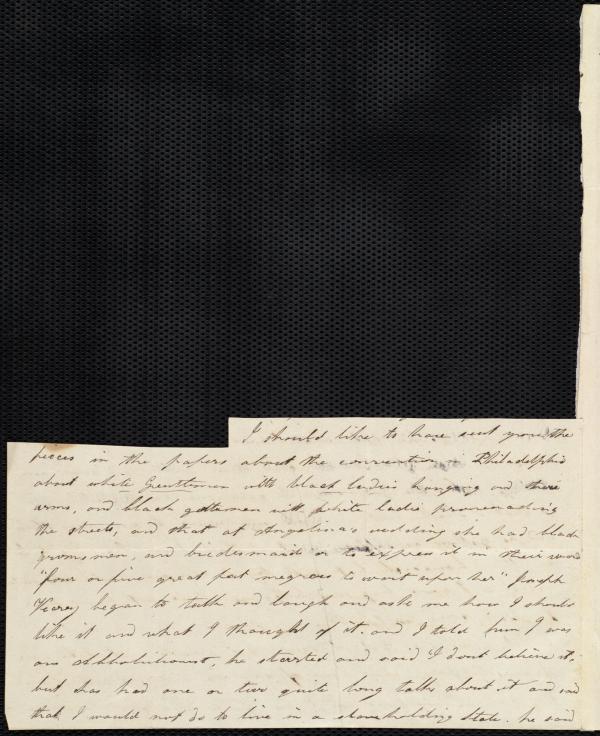 I should like to have sent you the
peices in the papers about the convention in Philadelphia
about white Gentlemen with black ladies hanging on their
arms, and black gentemen with white ladies promenading
the streets, and that at Angelina's wedding she had black
grooms men, and bridesmaids or to express it in their words
"four or five great fat negroes to wait upon her" Joseph
began to talk and laugh and ask me how I should
like it and what I thought of it. and I told him I was
an abbholitionist, he started and said I dont believe it,
but has had one or two quite long talks about it and said
that I would not do to live in a slaveholding state. he said